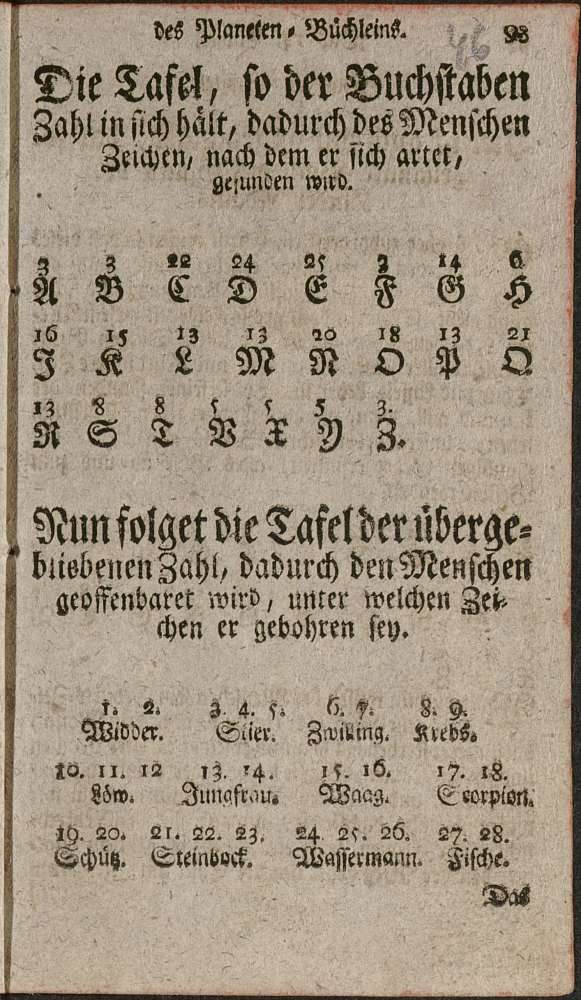 des Planeten-Büchleins. 93
46
Die Tafel, so der Buchstaben
Zahl in sich hält, dadurch des Menschen
Zeichen, nach dem er sich artet,
gefunden wird.
3 3 22 24 25 3 14 6
A B C D E F G H
16 15 13 13 20 18 13 21
J K L M N O P Q
13 8 8 5 5 5 3.
R S T V X Y Z.
Nun folget die Tafel der überge-
bliebenen Zahl, dadurch den Menschen
geoffenbaret wird, unter welchen Zei-
chen er gebohren sey.
1. 2. 3. 4. 5. 6. 7. 8. 9.
Widder. Stier. Zwilling. Krebs.
10. 11. 12 13. 14. 15. 16. 17. 18.
Löw. Jungfrau. Waag. Scorpion.
19. 20. 21. 22. 23. 24. 25. 26. 27. 28.
Schütz. Steinbock. Wassermann. Fische.
Das